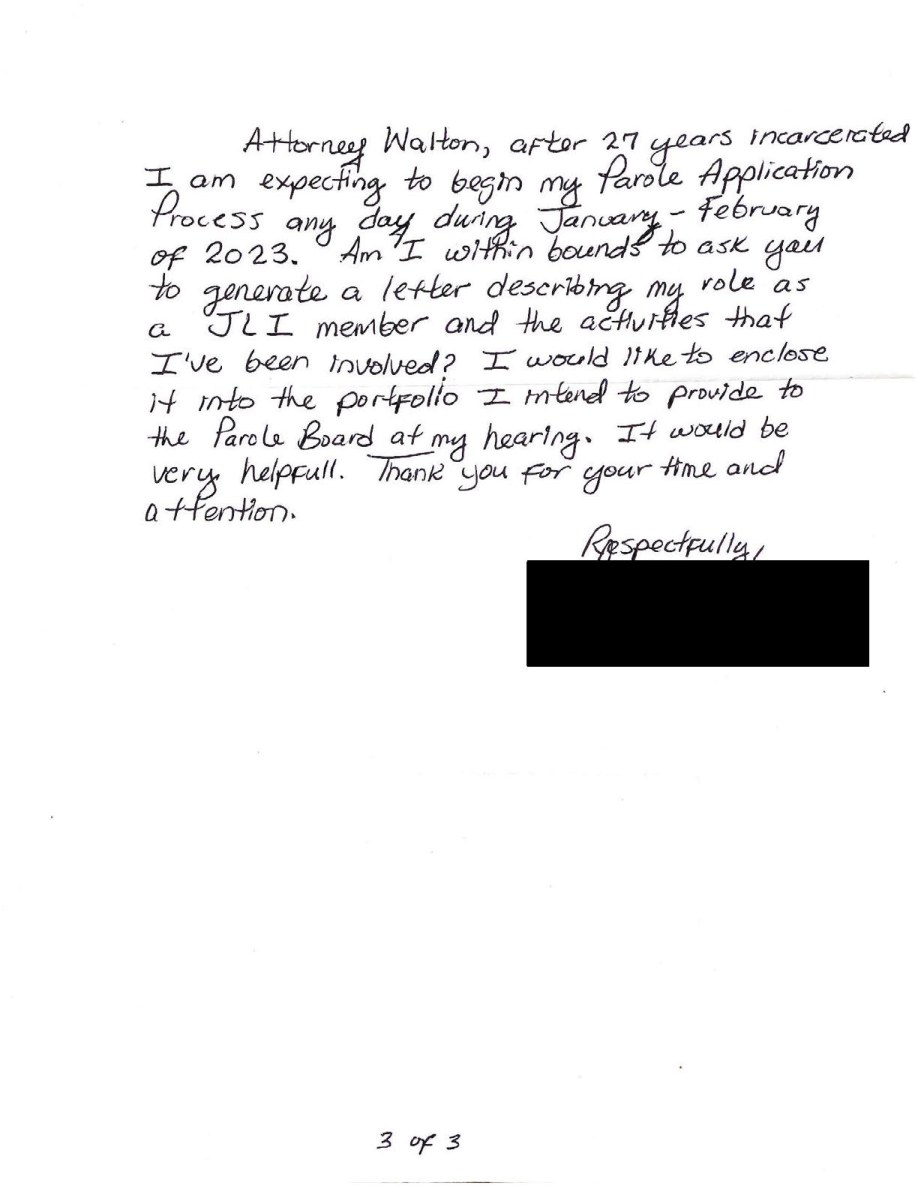 Attorney Walton, after 27 years incarcerated
I am expecting to begin my Parole Application
Process any day during January - February
of 2023. Am I within bounds to ask you
to generate a letter describing my role as
a JLI member and the activities that
I've been involved? I would like to enclose
it into the portfolio I intend to provide to
the Parole Board at my hearing. It would be
very helpfull. Thank you for your time and
attention.
Respectfully,
3 of 3